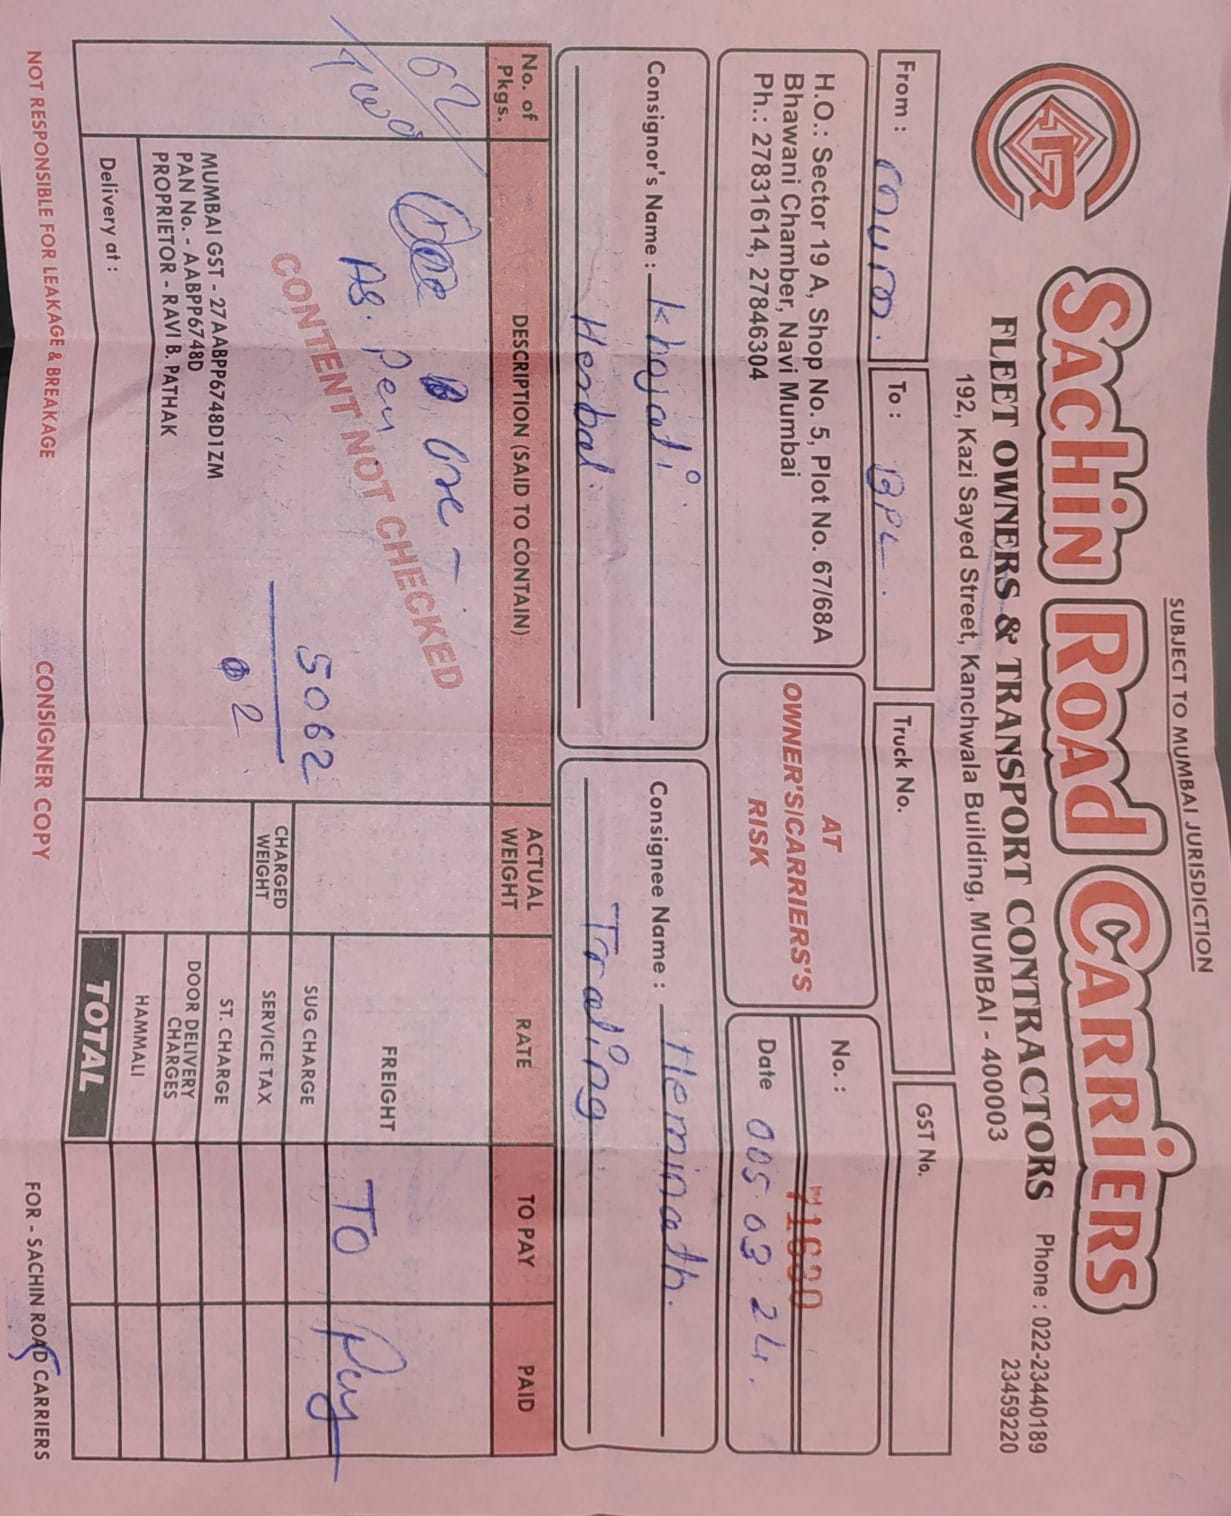 SUBJECT TO MUMBAI JURISDICTION
SACHIN ROAD CARRIERS
FLEET OWNERS & TRANSPORT CONTRACTORS
Phone : 022-23440189
23459220
192, Kazi Sayed Street, Kanchwala Building, MUMBAI - 400003
From :
To : BPL.
Truck No.
GST No.
H.O.: Sector 19 A, Shop No. 5, Plot No. 67/68A
Bhawani Chamber, Navi Mumbai
Ph.: 27831614, 27846304
AT
OWNER'S/CARRIERS'S
RISK
No. : 71680
Date 005.03.24.
Consignor's Name : Khojati
Herbal
Consignee Name : Heminath.
Trading
No. of Pkgs.
DESCRIPTION (SAID TO CONTAIN)
ACTUAL WEIGHT
RATE
TO PAY
PAID
62
Two
As. Per
CONTENT NOT CHECKED
5062
2
FREIGHT
TO Pay
SUG CHARGE
CHARGED WEIGHT
SERVICE TAX
ST. CHARGE
DOOR DELIVERY CHARGES
HAMMALI
TOTAL
MUMBAI GST - 27AABPP6748D1ZM
PAN No. - AABPP6748D
PROPRIETOR - RAVI B. PATHAK
Delivery at :
NOT RESPONSIBLE FOR LEAKAGE & BREAKAGE
CONSIGNER COPY
FOR - SACHIN ROAD CARRIERS